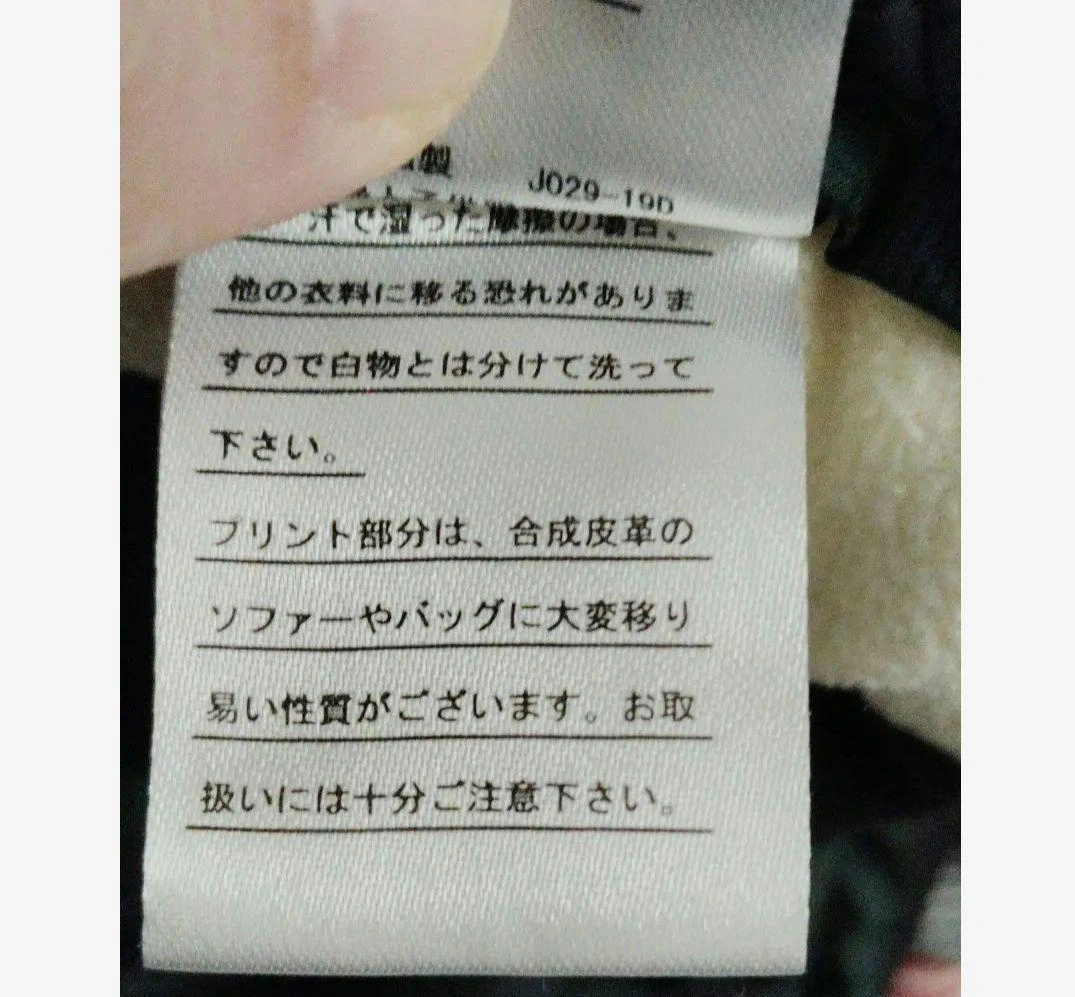 製
J029-19D
汗で湿った摩擦の場合、
他の衣料に移る恐れがありま
すので白物とは分けて洗って
下さい。
プリント部分は、合成皮革の
ソファーやバッグに大変移り
易い性質がございます。お取
扱いには十分ご注意下さい。